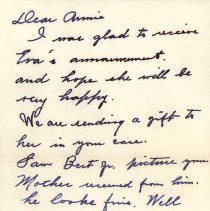 Dear Annie
I was glad to receive
Eva's announcement.
and hope she will be
very happy.
We are sending a gift to
her in your care.
Saw Bert Jr. picture your
Mother received from him.
he looks fine. Well